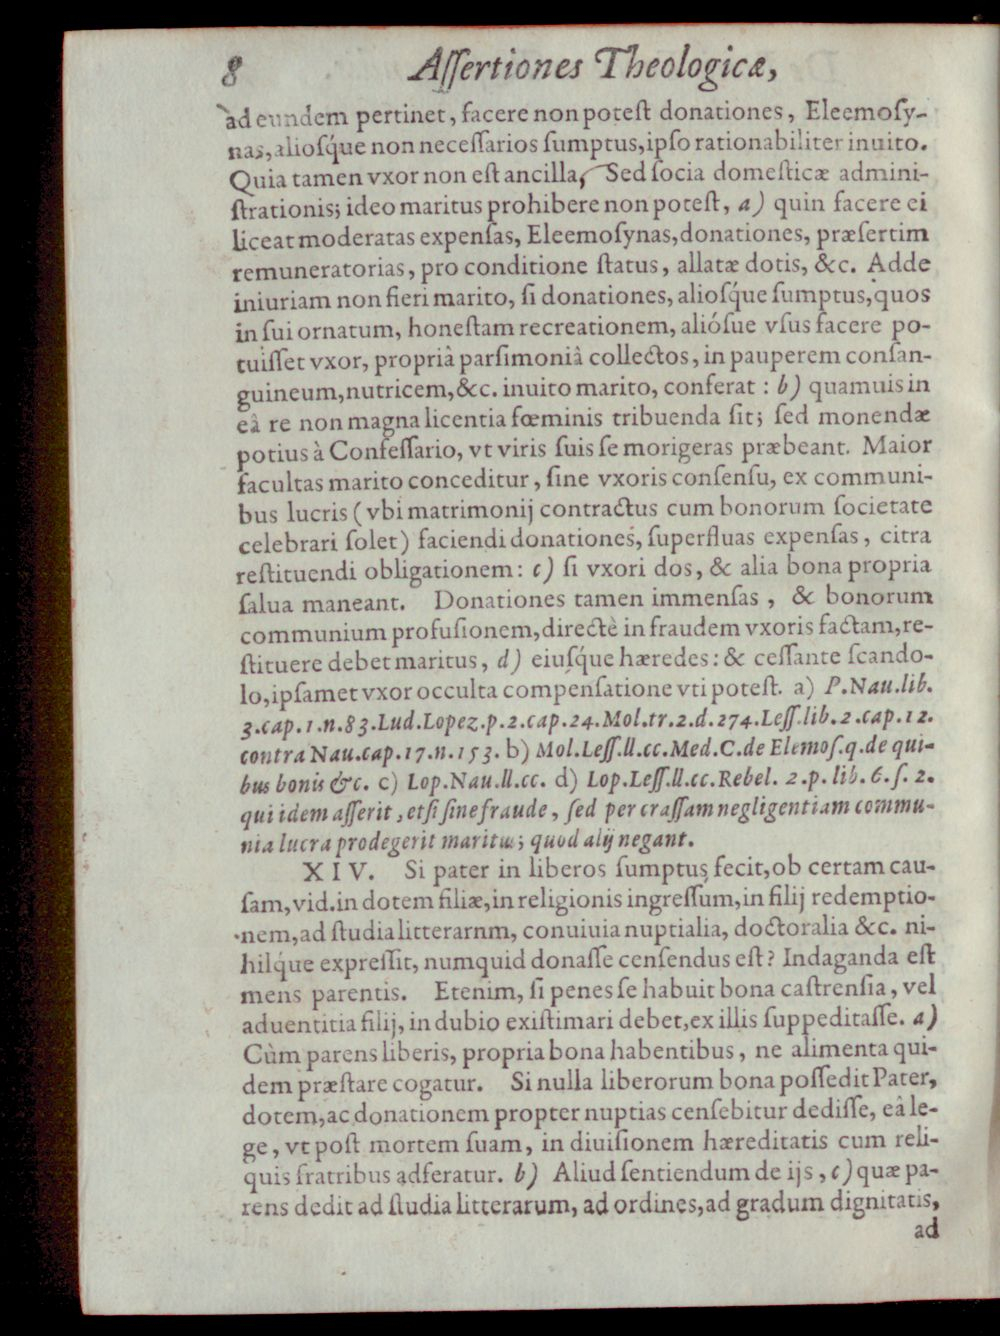 8 Aſſertiones Theologicæ,
ad eundem pertinet, facere non poteſt donationes, Eleemoſy-
nas, alioſq́ue non neceſſarios ſumptus, ipſo rationabiliter inuito.
Quia tamen vxor non eſt ancilla, Sed ſocia domeſticæ admini-
ſtrationis; ideo maritus prohibere non poteſt, a) quin facere ei
liceat moderatas expenſas, Eleemoſynas, donationes, præſertim
remuneratorias, pro conditione ſtatus, allatæ dotis, &c. Adde
iniuriam non fieri marito, ſi donationes, alioſq́ue ſumptus, quos
in ſui ornatum, honeſtam recreationem, alióſue vſus facere po-
tuiſſet vxor, propriâ parſimoniâ collectos, in pauperem conſan-
guineum, nutricem, &c. inuito marito, conferat : b) quamuis in
eâ re non magna licentia fœminis tribuenda ſit; ſed monendæ
potius à Confeſſario, vt viris ſuis ſe morigeras præbeant. Maior
facultas marito conceditur, ſine vxoris conſenſu, ex communi-
bus lucris (vbi matrimonij contractus cum bonorum ſocietate
celebrari ſolet) faciendi donationes, ſuperfluas expenſas, citra
reſtituendi obligationem: c) ſi vxori dos, & alia bona propria
ſalua maneant. Donationes tamen immenſas, & bonorum
communium profuſionem, directè in fraudem vxoris factam, re-
ſtituere debet maritus, d) eiuſq́ue hæredes: & ceſſante ſcando-
lo, ipſamet vxor occulta compenſatione vti poteſt. a) P. Nau. lib.
3. cap. 1. n. 83. Lud. Lopez. p. 2. cap. 24. Mol. tr. 2. d. 274. Leſſ. lib. 2. cap. 12.
contra Nau. cap. 17. n. 153. b) Mol. Leſſ. ll. cc. Med. C. de Elemoſ. q. de qui-
bus bonis &c. c) Lop. Nau. ll. cc. d) Lop. Leſſ. ll. cc. Rebel. 2. p. lib. 6. ſ. 2.
qui idem aſſerit, etſi ſine fraude, ſed per craſſam negligentiam commu-
nia lucra prodegerit maritus; quod alij negant.
XIV. Si pater in liberos ſumptus fecit, ob certam cau-
ſam, vid. in dotem filiæ, in religionis ingreſſum, in filij redemptio-
nem, ad ſtudia litterarnm, conuiuia nuptialia, doctoralia &c. ni-
hilq́ue expreſſit, numquid donaſſe cenſendus eſt? Indaganda eſt
mens parentis. Etenim, ſi penes ſe habuit bona caſtrenſia, vel
aduentitia filij, in dubio exiſtimari debet, ex illis ſuppeditaſſe. a)
Cùm parens liberis, propria bona habentibus, ne alimenta qui-
dem præſtare cogatur. Si nulla liberorum bona poſſedit Pater,
dotem, ac donationem propter nuptias cenſebitur dediſſe, eâ le-
ge, vt poſt mortem ſuam, in diuiſionem hæreditatis cum reli-
quis fratribus adferatur. b) Aliud ſentiendum de ijs, c) quæ pa-
rens dedit ad ſtudia litterarum, ad ordines, ad gradum dignitatis,
ad